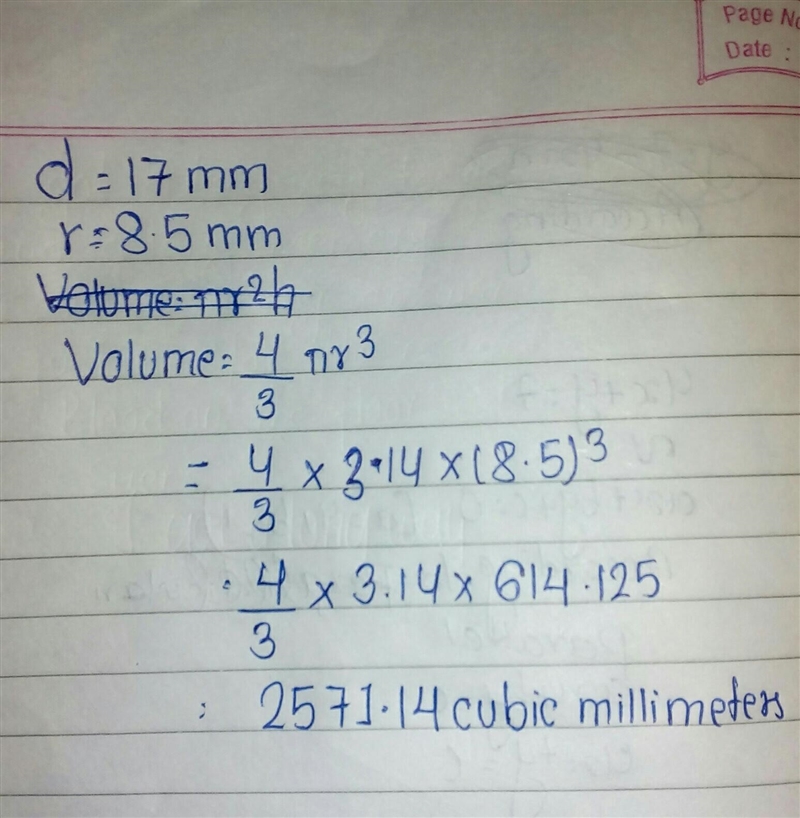 Page No
Date :
d = 17 mm
r = 8.5 mm
Volume = πr²h
Volume = 4/3 πr³
= 4/3 × 3.14 × (8.5)³
= 4/3 × 3.14 × 614.125
: 2571.14 cubic millimeters